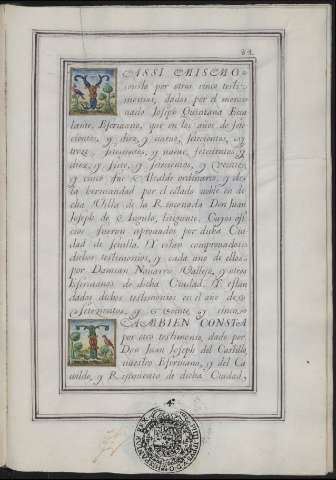 84.
Y ASSI MISMO
consta por otros cinco testi-
monios, dados por el mencio-
nado Joseph Quintana Esca
lante, Escrivano, que en los años de sete-
cientos, y diez, y nueve, setecientos, y
y nueve, setecientos, y
diez, y siete, y setecientos, y veinte,
y cinco fue Alcalde ordinario, y de
la hermandad por el estado noble en di-
cha Villa de la Rinconada Don Juan
Joseph de Angulo, litigante, Cuyos ofi
cios fueron aprovados por dicha Ciu
dad de Sevilla. Y estan comprovados
dichos testimonios, y cada uno de ellos
por Damian Navarro Vallejo, y otros
Escrivanos de dicha Ciudad. Y estan
dados dichos testimonios en el año de
Setecientos, y Veinte, y cinco.
TAMBIEN CONSTA
por otro testimonio, dado por
Don Juan Joseph del Castillo,
nuestro Escrivano, y del Ca
vildo, y Regimiento de dicha Ciudad,